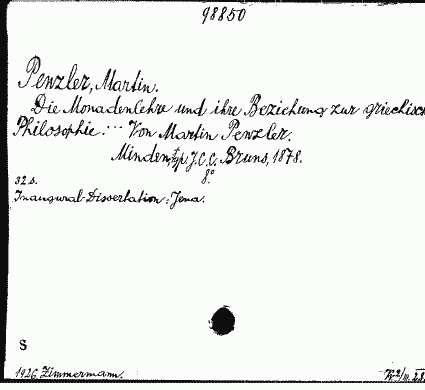 98850
Penzler, Martin.
Die Monadenlehre und ihre Beziehung zur griechisch
Philosophie. ... Von Martin Penzler.
Minden, typ. J. C. C. Bruns, 1878.
8°
32 s.
Inaugural-Dissertation: Jena.
S
1926 Zimmermann.